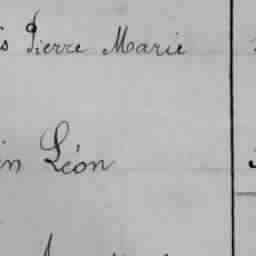 s Pierre Marie
in Léon